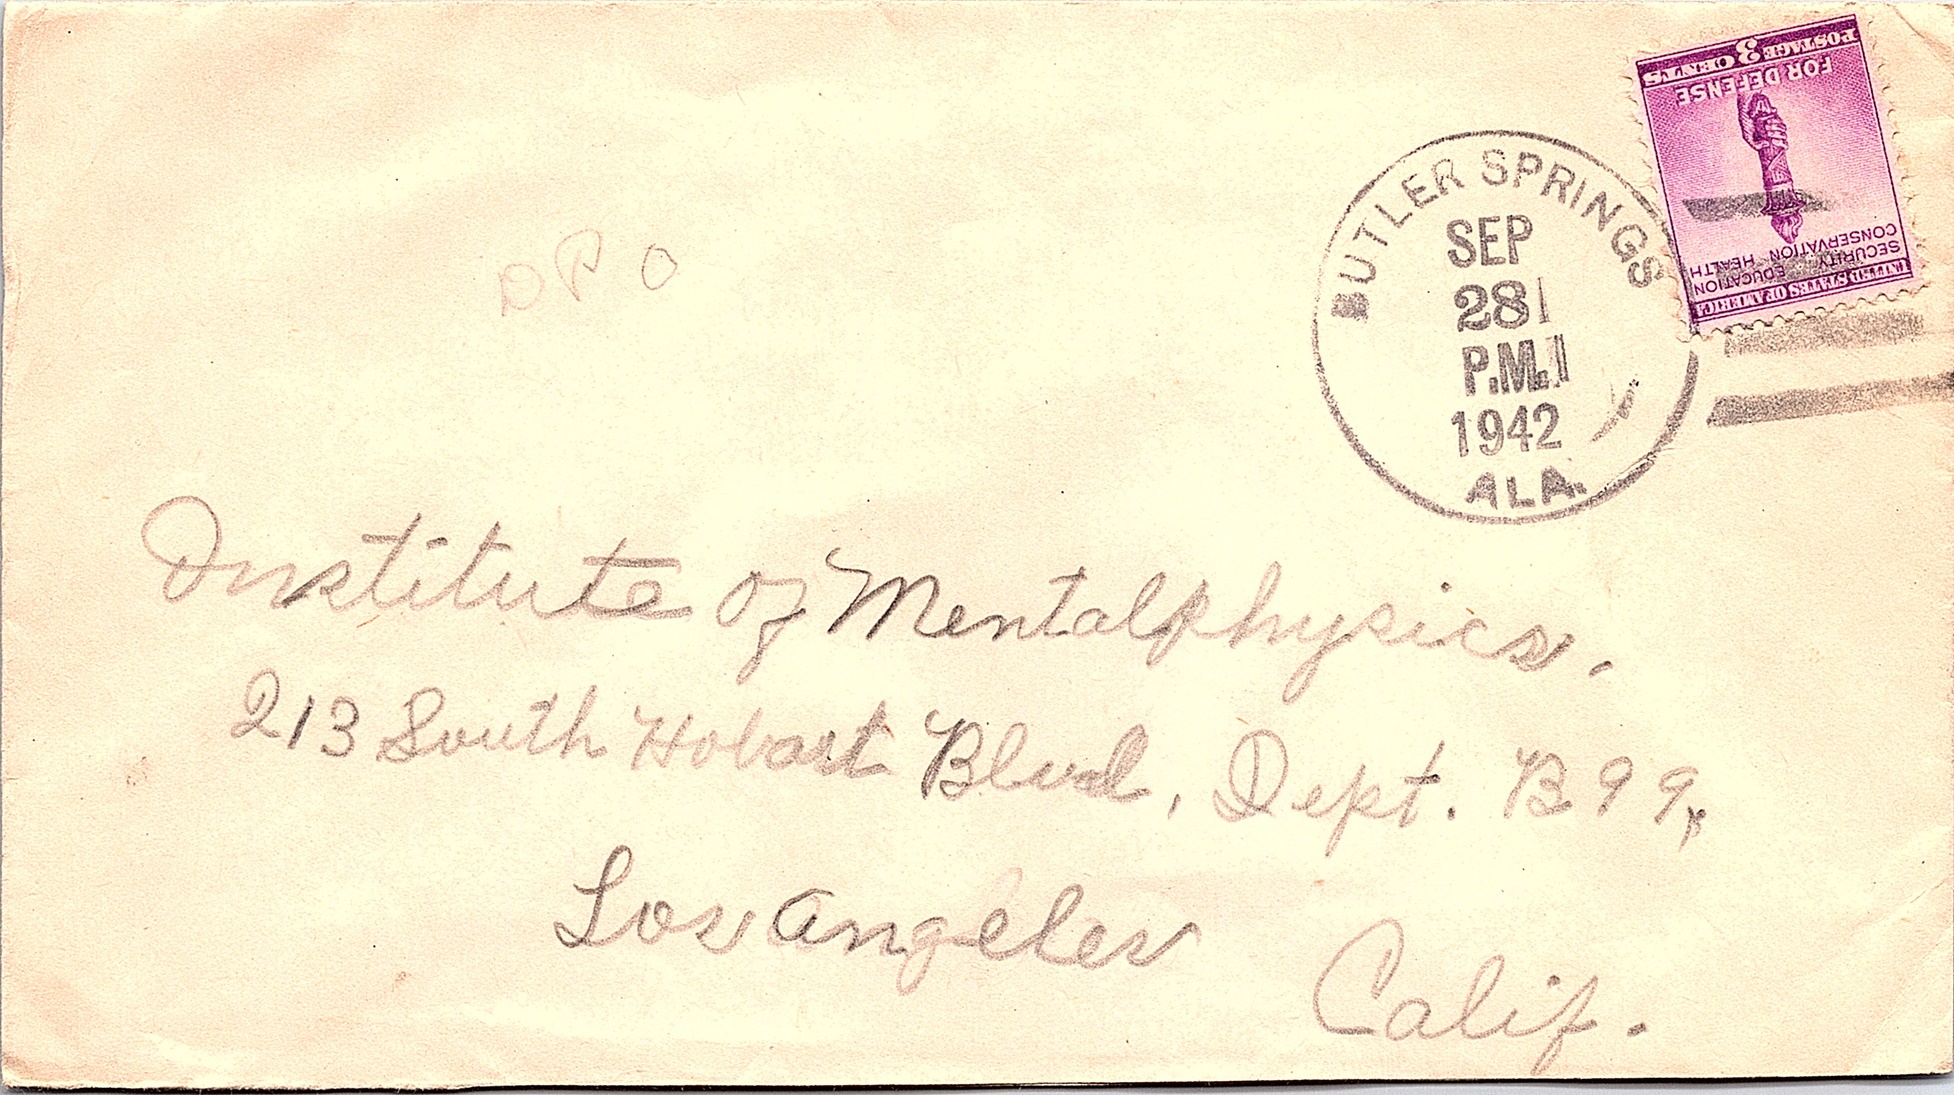 DPO
BUTLER SPRINGS
SEP
28
P.M.
1942
ALA.
POSTAGE 3 CENTS
FOR DEFENSE
SECURITY EDUCATION
CONSERVATION HEALTH
UNITED STATES OF AMERICA
Institute of Mentalphysics.
213 South Hobart Blvd, Dept. B99,
Los Angeles
Calif.